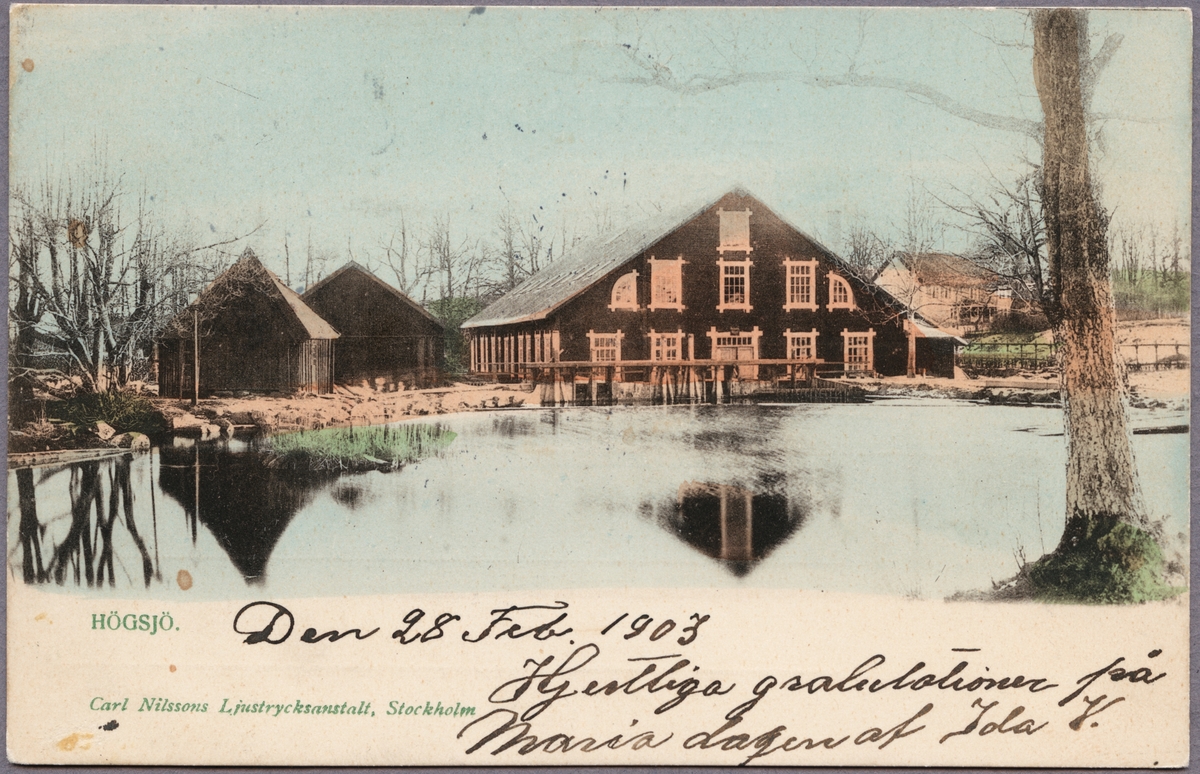 HÖGSJÖ.
Den 28 Feb. 1903
Hjertliga gratulationer på
Maria dagen af Ida V.
Carl Nilssons Ljustrycksanstalt, Stockholm